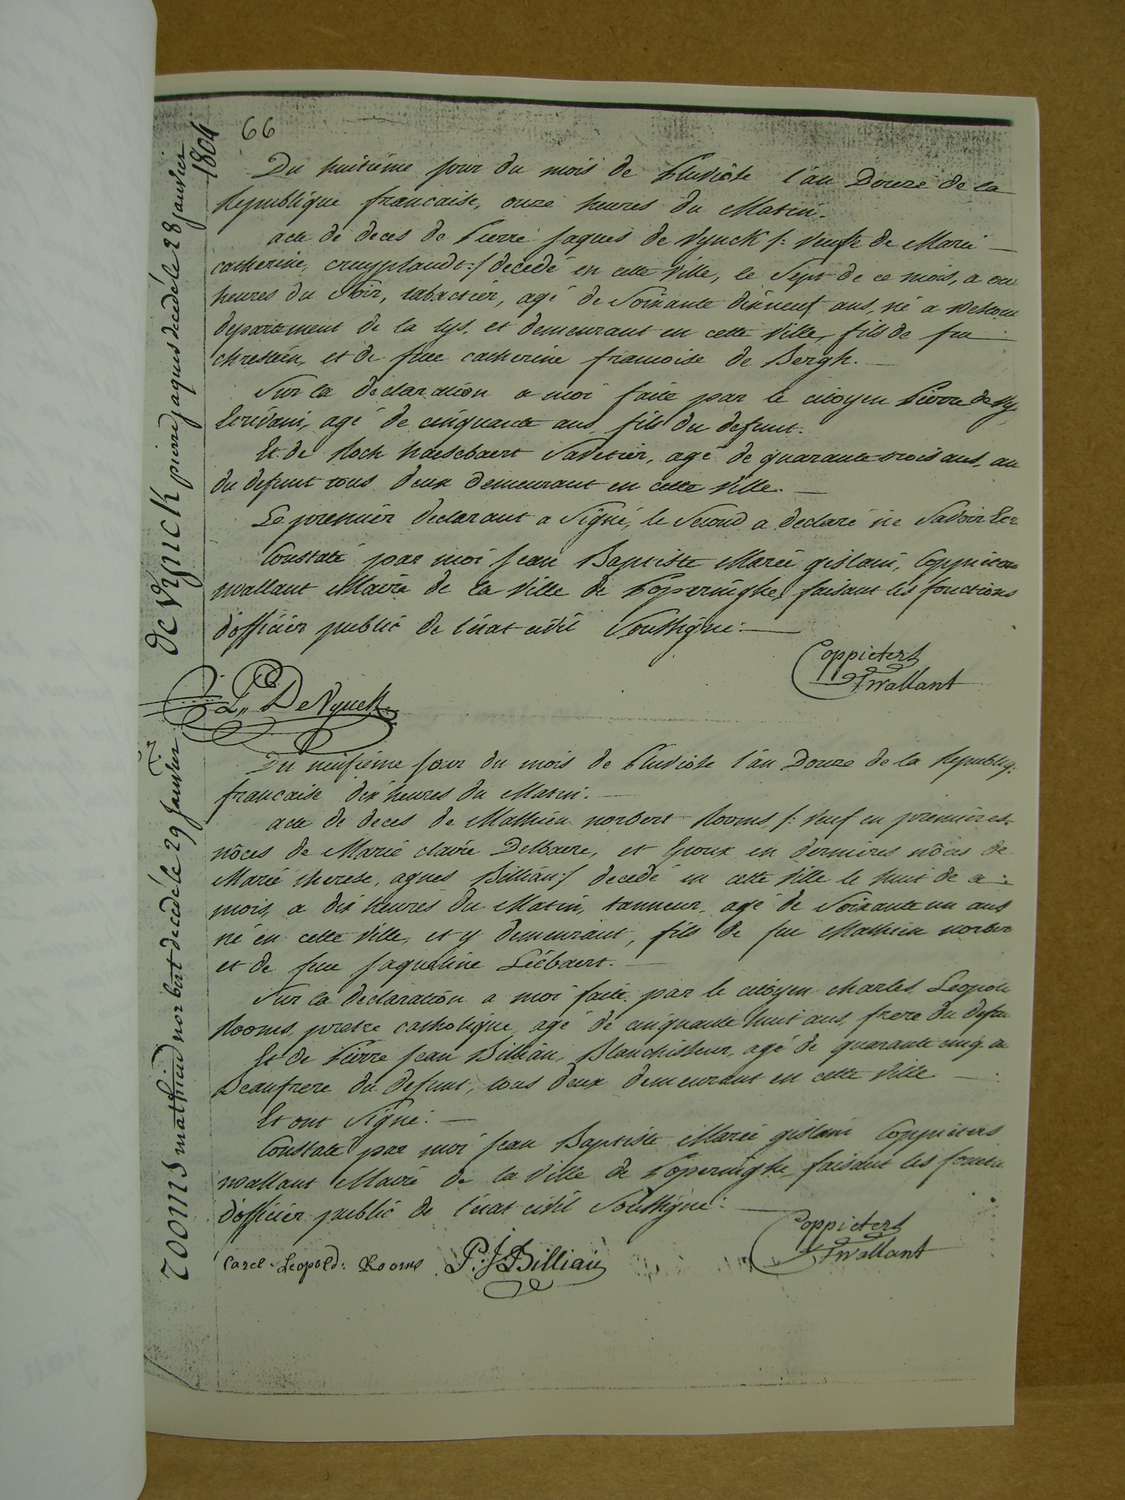 66
1804
de Vynck pierre jaques decedé le 28 janvier
Du huitième jour du mois de Pluviôse l'an Douze de la
Republique francaise, onze heures du Matin.
acte de deces de Pierre Jaques de Vynck /: Veuf de Marie
catherine, cruyplandt :/ decedé en cette Ville, le Sept de ce mois, a on
heures du Soir, tabactier, agé de Soixante dixneuf ans, né a
departement de la Lys, et demeurant en cette Ville, fils de feu
chretien, et de feue catherine francoise de Bergh.
Sur la declaration a moi faite par le citoyen Pierre de Vy
Ecrivain, agé de cinquante ans, fils du defunt.
Et de Roch haesebaert Savetier, agé de quarante trois ans, au
du defunt tous deux demeurant en cette Ville.
Le premier declarant a Signé, le Second a declaré ne Savoir Ecr
Constaté par moi Jean Baptiste Marie gislain, Coppieters
wallant Maire de la Ville de Poperinghe, faisant les fonctions
d'officier public de l'état civil Soussigné :
Coppieters
Twallant
P. DeVynck
67.
rooms mathieu norbert decedé le 29 janvier
Du huitième jour du mois de Pluviôse l'an Douze de la Republiq.
francaise dix heures du Matin.
acte de deces de Mathieu norbert Rooms /: Veuf en premieres
nôces de Marie claire Delbaere, et Epoux en dernieres nôces de
Marie therese, agnes Billiau :/ decedé en cette Ville le huit de ce
mois, a dix heures du Matin, tanneur, agé de Soixante un ans
né en cette Ville, et y demeurant, fils de feu Mathieu norber
et de feue Jaqueline Liébaert.
Sur la declaration a moi faite par le citoyen charles Leopol
Rooms, pretre catholique, agé de cinquante huit ans, frere du defu
Et de Pierre Jean Billiau, Blanchisseur, agé de quarante cinq a
Beaufrere du defunt, tous deux demeurant en cette Ville
Et ont Signé :
Constaté par moi Jean Baptiste Marie gislain Coppieters
wallant Maire de la Ville de Poperinghe, faisant les foncti
d'officier public de l'état civil Soussigné :
Carel. Leopold. Rooms P. J Billiau
Coppieters
Twallant